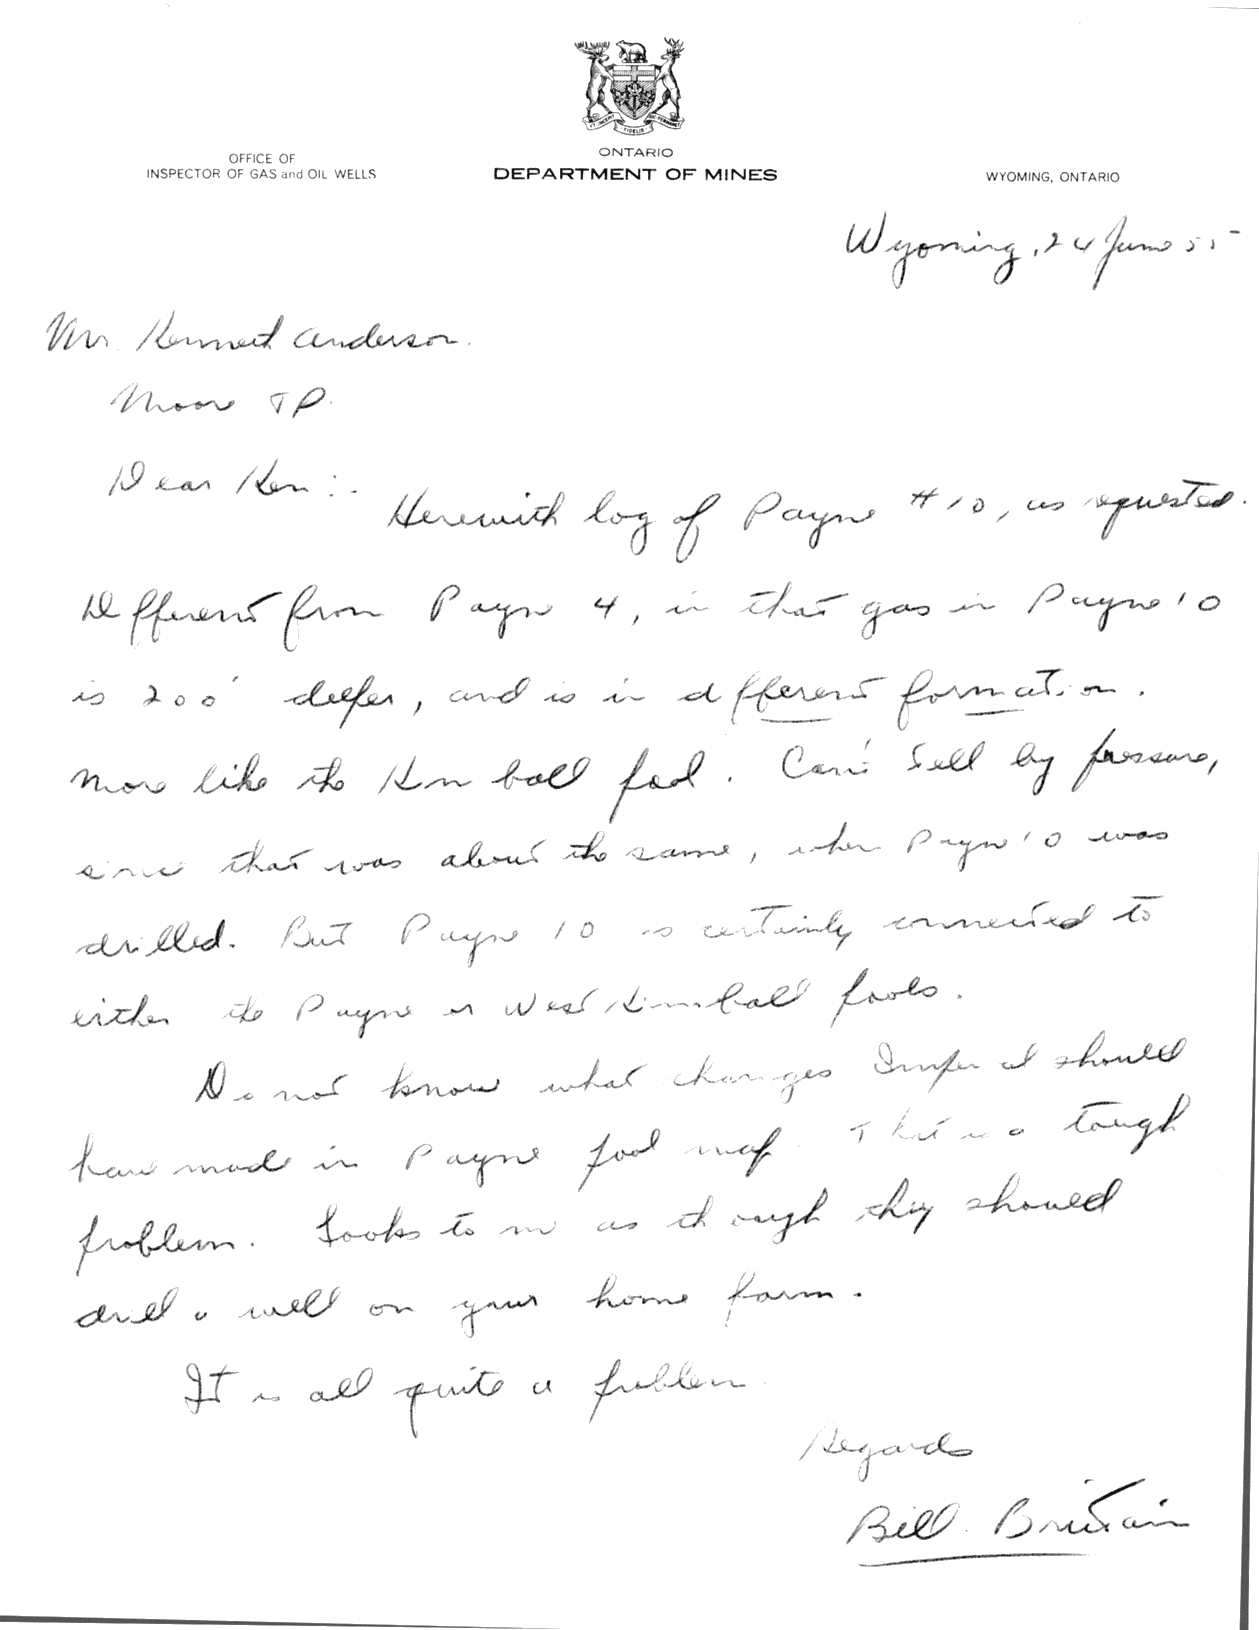 UT INCEPIT FIDELIS SIC PERMANET
ONTARIO
OFFICE OF
INSPECTOR OF GAS and OIL WELLS
DEPARTMENT OF MINES
WYOMING, ONTARIO
Wyoming, 24 June 55
Mr. Kenneth Anderson.
Moore TP.
Dear Ken:.
Herewith log of Payne #10, as requested.
Different from Payne 4, in that gas in Payne 10
is 200' deeper, and is in different formation.
More like the Kimball pool. Can't tell by pressure,
since that was about the same, when Payne 10 was
drilled. But Payne 10 is certainly connected to
either the Payne or West Kimball pools.
Do not know what changes Imperial should
have made in Payne pool map. That is a tough
problem. Looks to me as though they should
drill a well on your home farm.
It is all quite a problem
Regards
Bill Brittain